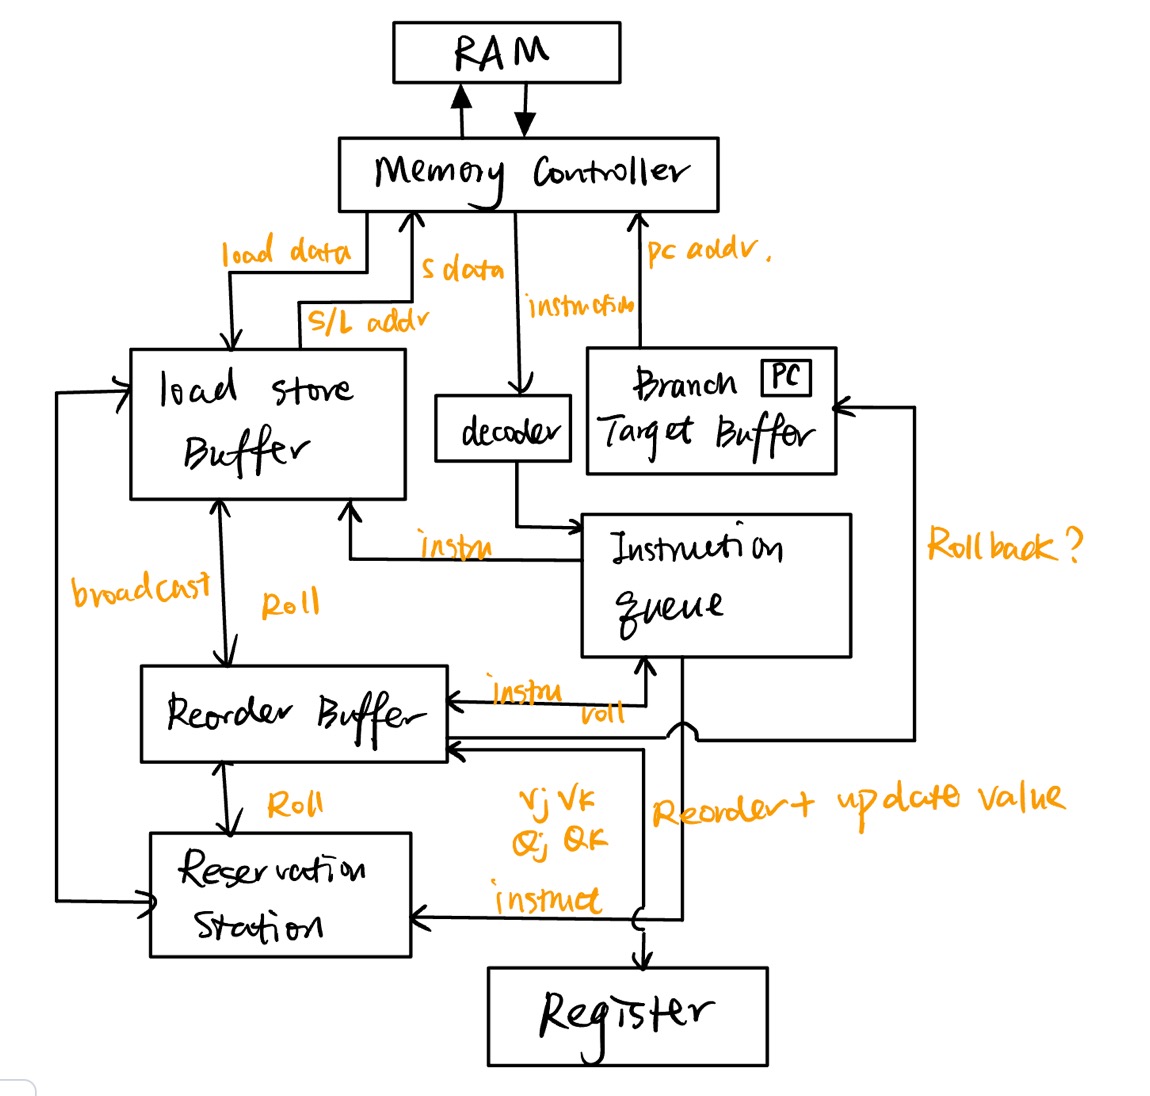 RAM
Memory Controller
load data
S data
pc addr.
instruction
S/L addr
load store
Buffer
decoder
Branch PC
Target Buffer
instru
Instruction
queue
Rollback?
broadcast
Roll
Reorder Buffer
instru
roll
Roll
Vj Vk
Qj Qk
Reorder+ update value
Reservation
Station
instruct
Register